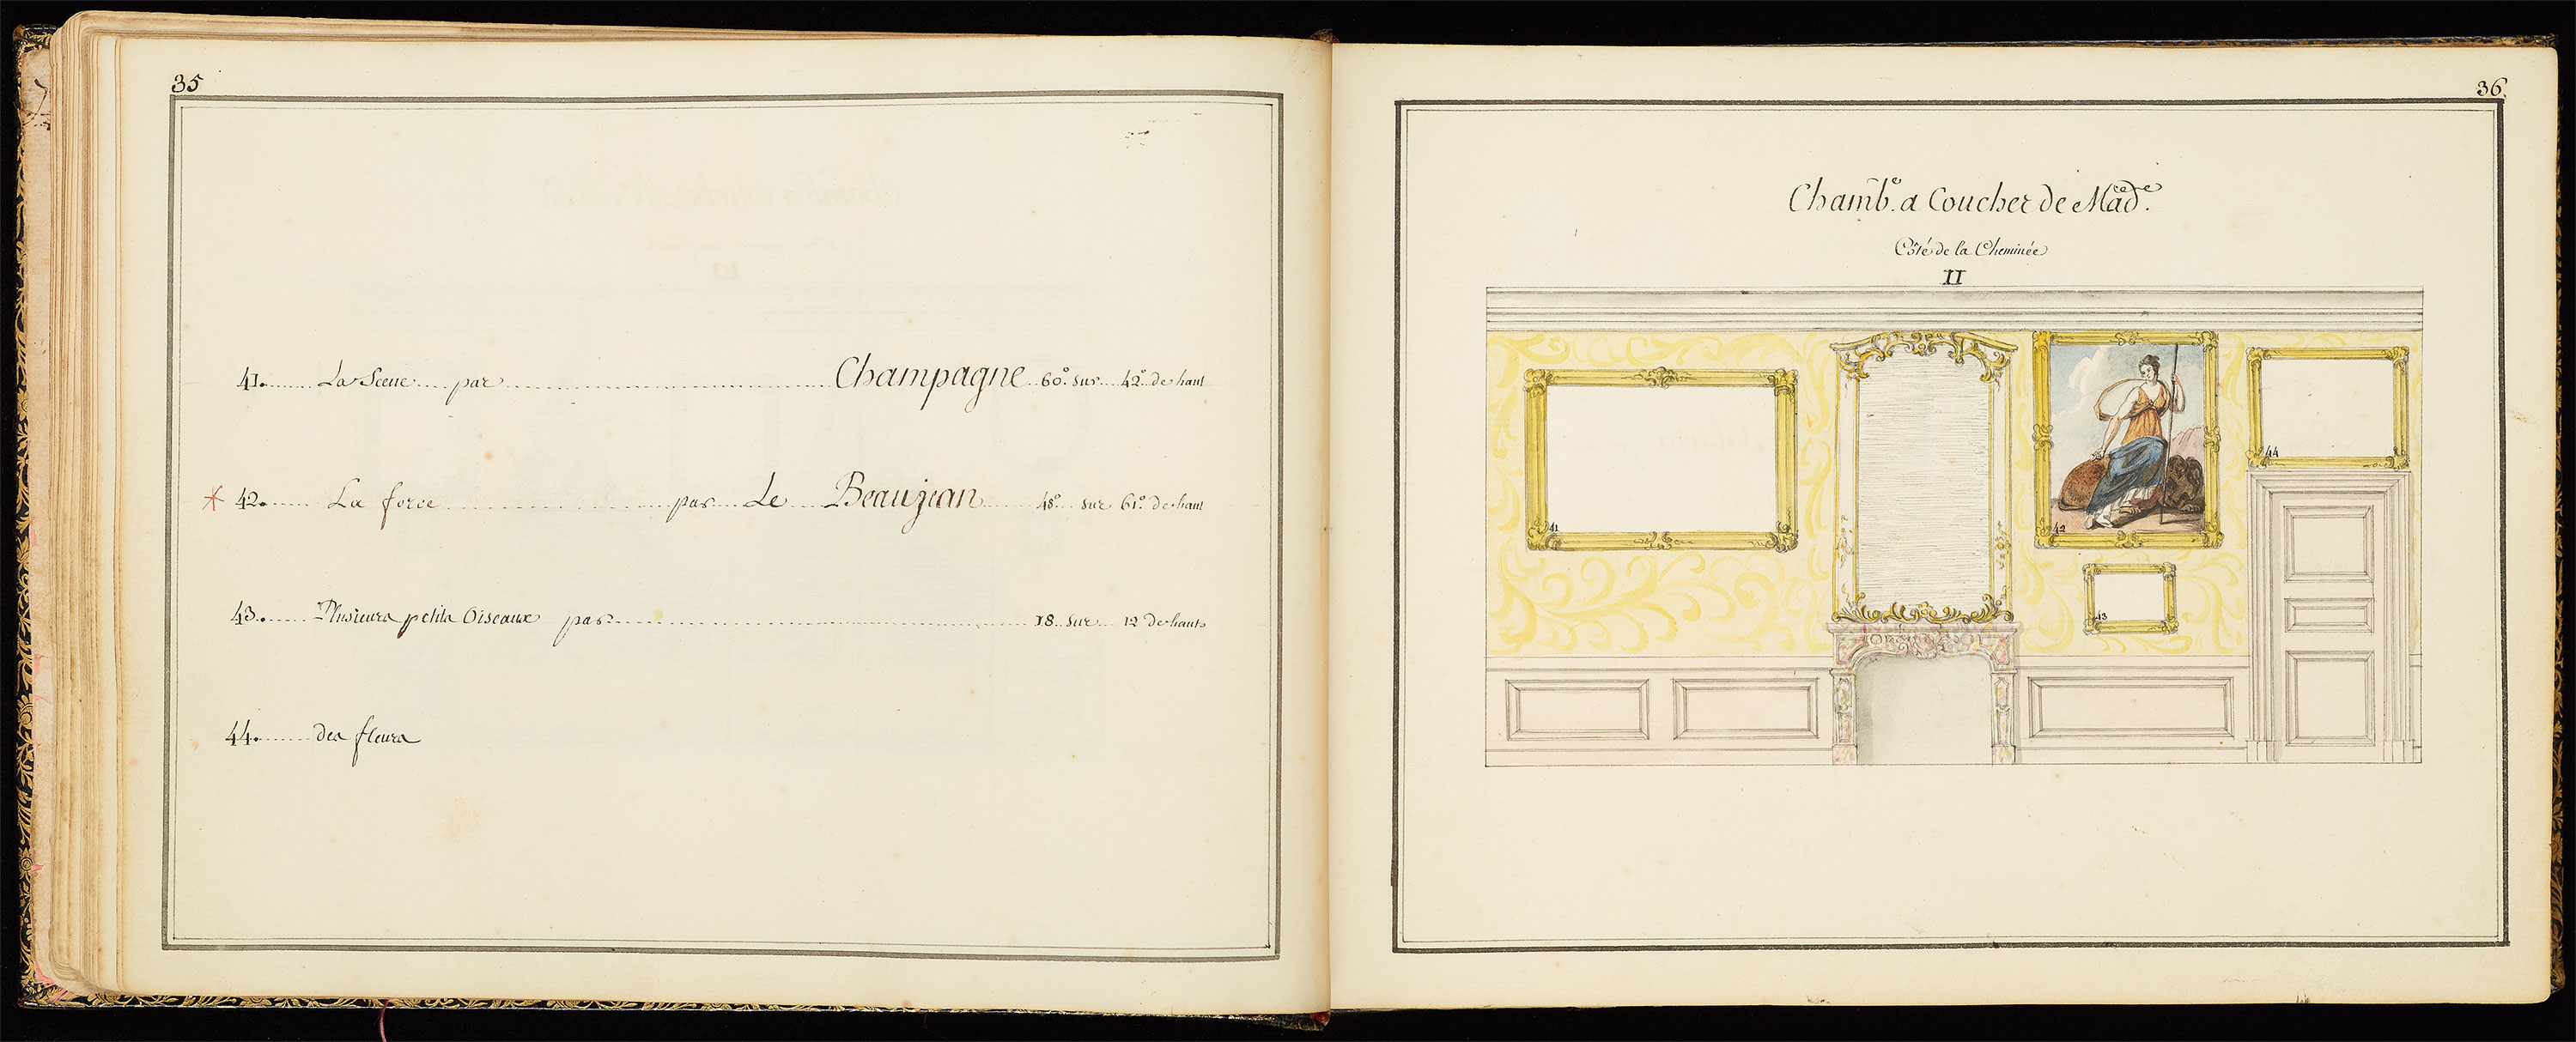 35
41. La Scene par Champagne 60° sur 42° de haut
* 42. La force par Le Beaujean 48° sur 61° de haut
43. Plusieurs petits Oiseaux par 18 sur 12 de haut
44. des fleurs
36.
Chamb.e a Coucher de Mad.
Côté de la Cheminée
II
41
42
43
44